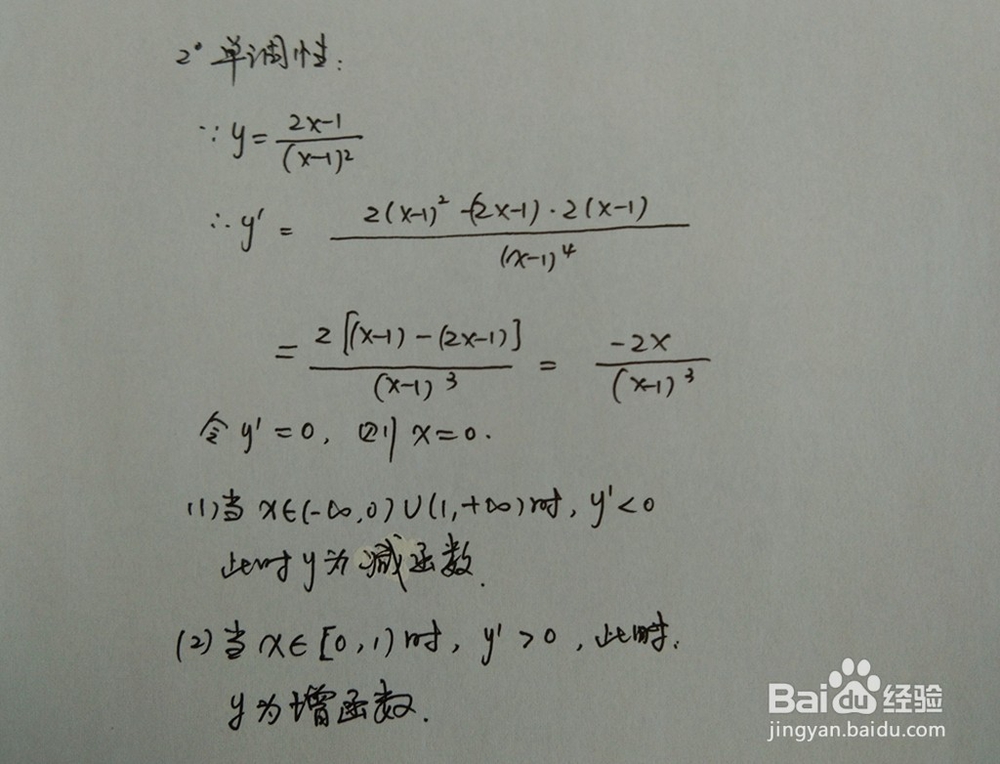 2° 单调性:
∵ y = (2x-1)/(x-1)²
∴ y' = (2(x-1)² -(2x-1)·2(x-1))/(x-1)⁴
= (2[(x-1)-(2x-1)])/(x-1)³ = (-2x)/(x-1)³
令 y'=0, 则 x=0.
(1)当 x∈(-∞,0)∪(1,+∞)时, y'<0
此时 y为减函数.
(2)当 x∈[0,1)时, y'>0, 此时.
y为增函数.
Baidu经验
jingyan.baidu.com